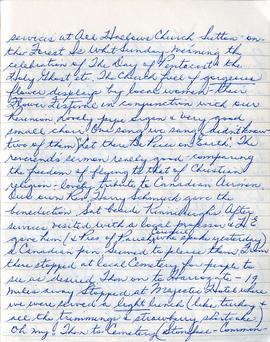 services at All Hallows Church Sutton - on
the Forest Is Whit Sunday meaning the
celebration of The Day of Pentecost the
Holy Ghost etc. The Church full of gorgeous
flower displays by local women - their
Flower Festival in conjunction with our
Reunion Lovely pipe organ & very good
small choir One song we sang didn't know
two of them "Let there be Peace on Earth". The
reverends sermon really good - comparing
the freedom of flying to that of Christian
religion - lovely tribute to Canadian Airmen
Our own Rev. Harry Schnuck gave the
benediction. Sat beside Kinniburghs After
services visited with a local professor &
gave him (& Pres of Parish who spoke yesterday)
a Canadian pin. Seemed to please them. Then
there stopped at local Cemetery for people to
see as desired. Then on to Harrogate - 19
miles away Stopped at Majestic Hotel where
we were served a light lunch (like turkey &
all the trimmings & strawberry shortcake)
Oh my! Then to Cemetery (Stonefall - Common-